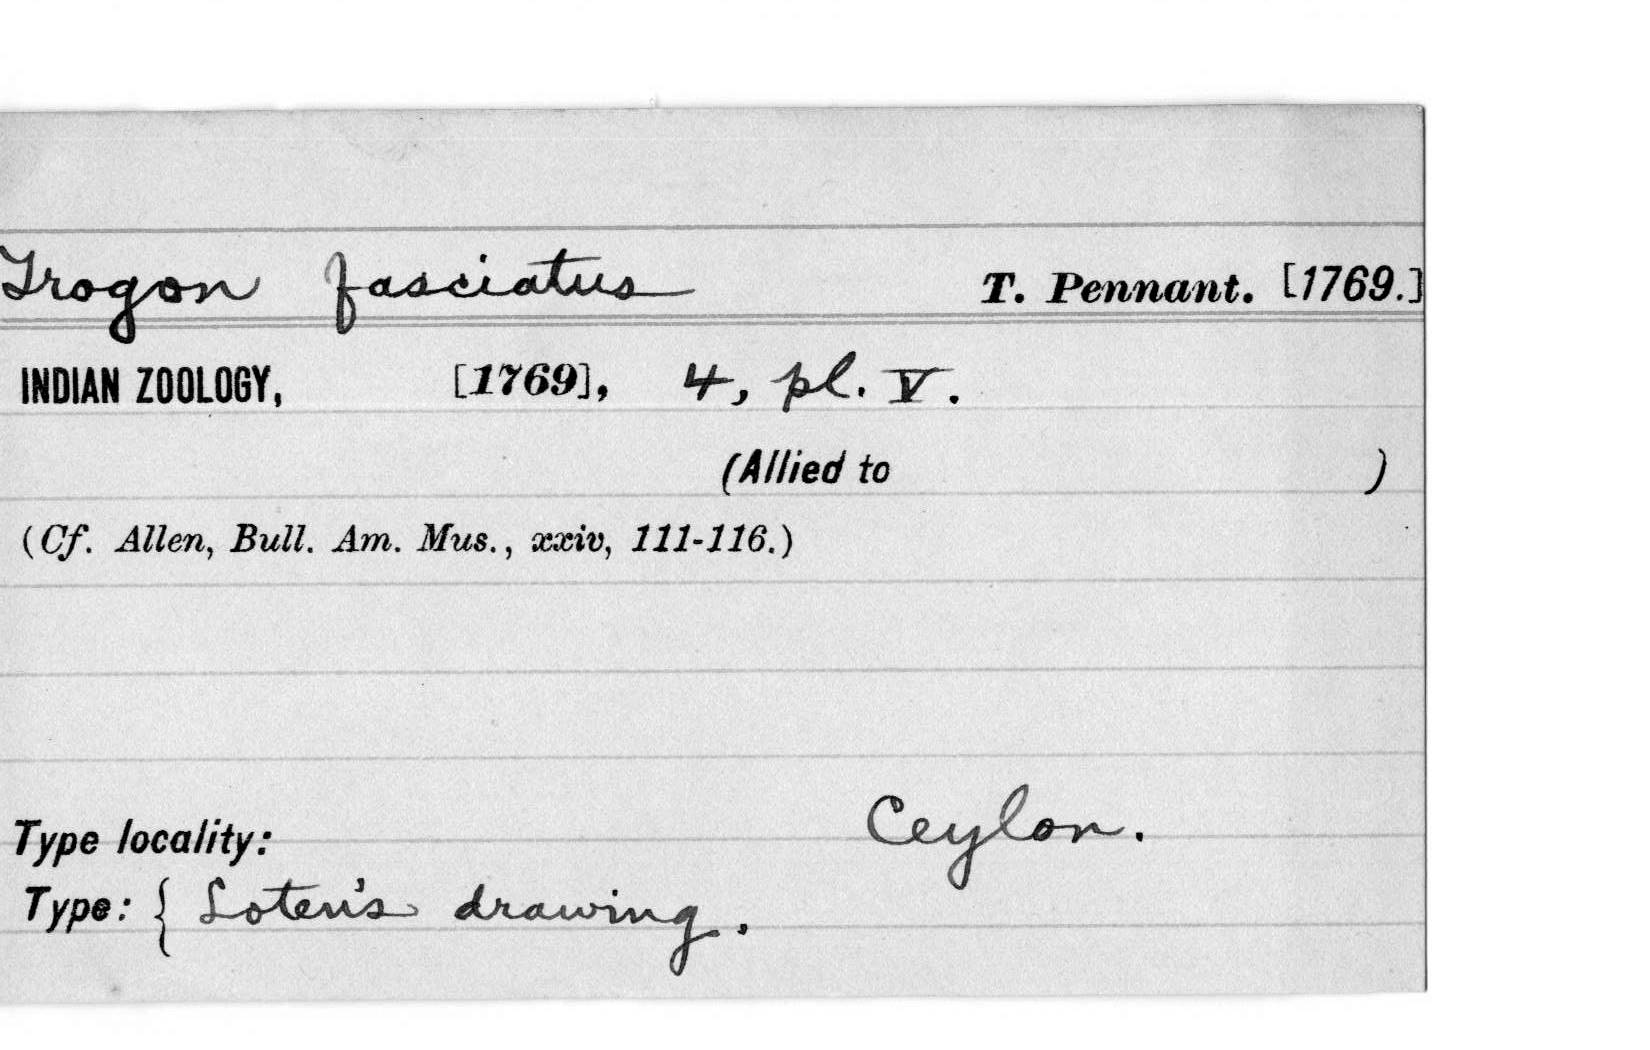 Trogon fasciatus T. Pennant. [1769.]
INDIAN ZOOLOGY, [1769], 4, pl. V.
(Allied to )
(Cf. Allen, Bull. Am. Mus., xxiv, 111-116.)
Ceylon.
Type locality:
Type: { Loten's drawing.